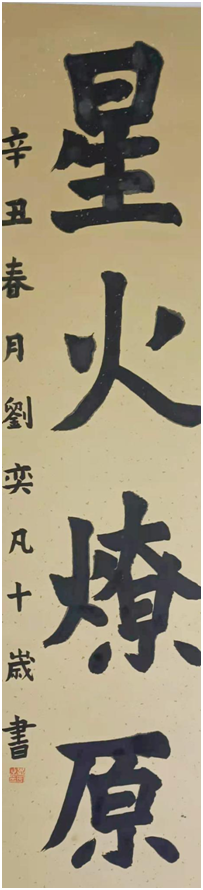 星火燎原
辛丑春月劉奕凡十歲書